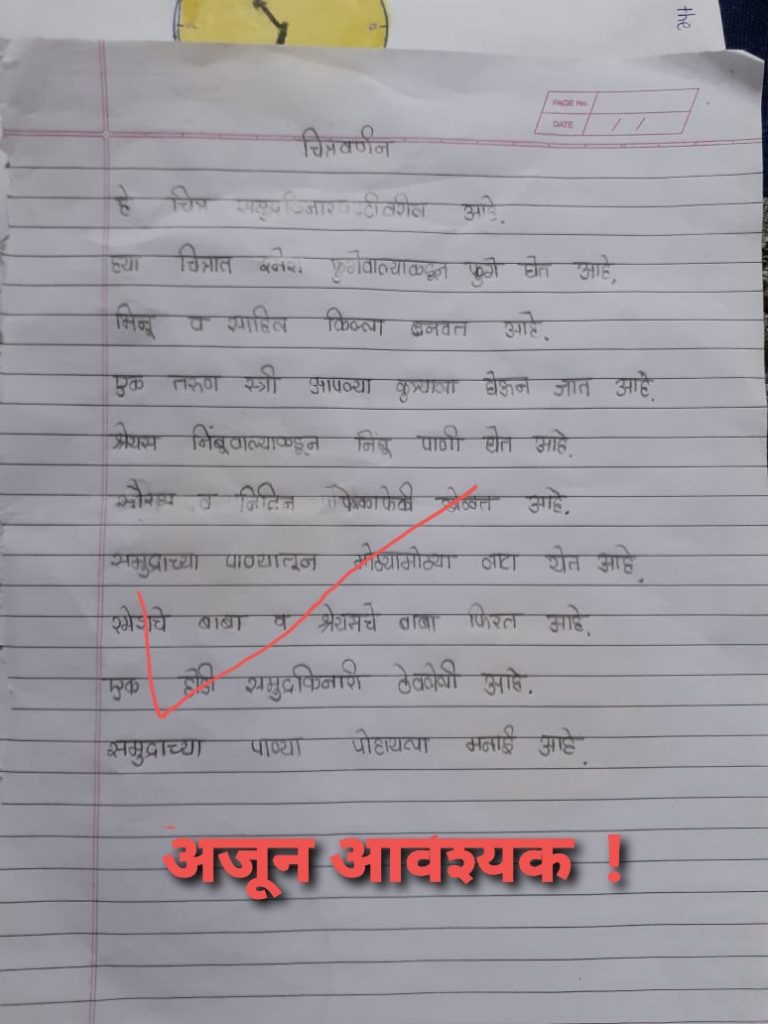 the
PAGE No.
DATE / /
चित्रवर्णन
हे चित्र आहे.
ह्या चित्रात फुगेवाल्याकडून फुगे घेत आहे.
मिनू व साहिल किल्ला बनवत आहे.
एक तरुण स्त्री आपल्या कुत्र्याला घेऊन जात आहे.
श्रेयस निंबूवाल्याकडून निंबू पाणी घेत आहे.
सौरभ व नितिन फेकाफेकी खेळत आहे.
समुद्राच्या पाण्यातून मोठ्यामोठ्या लाटा येत आहे.
रमेशचे बाबा व श्रेयसचे बाबा फिरत आहे.
एक होडी समुद्रकिनारी ठेवलेली आहे.
समुद्राच्या पाण्या पोहायला मनाई आहे.
अजून आवश्यक !